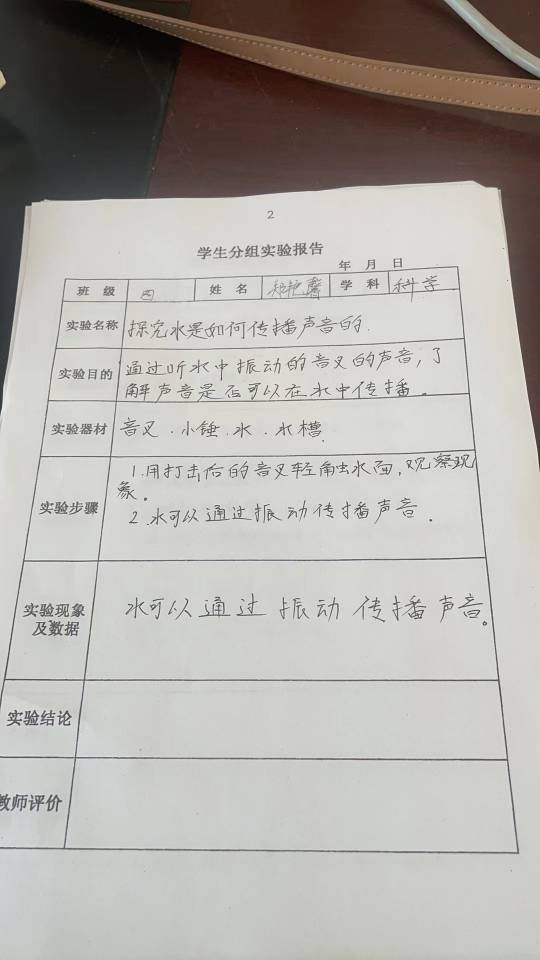 2
学生分组实验报告
年 月 日
班 级 四 姓 名 馨 学 科 科学
实验名称 探究水是如何传播声音的.
实验目的 通过听水中振动的音叉的声音,了
解声音是否可以在水中传播。
实验器材 音叉.小锤.水.水槽.
实验步骤 1.用打击后的音叉轻触水面,观察现
象。
2.水可以通过振动传播声音.
实验现象
及数据
水可以通过振动传播声音。
实验结论
教师评价